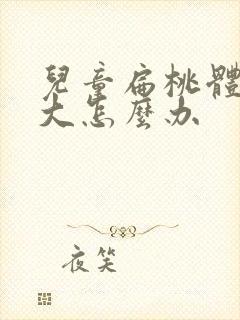 兒童扁桃體
大怎麼办
夜笑